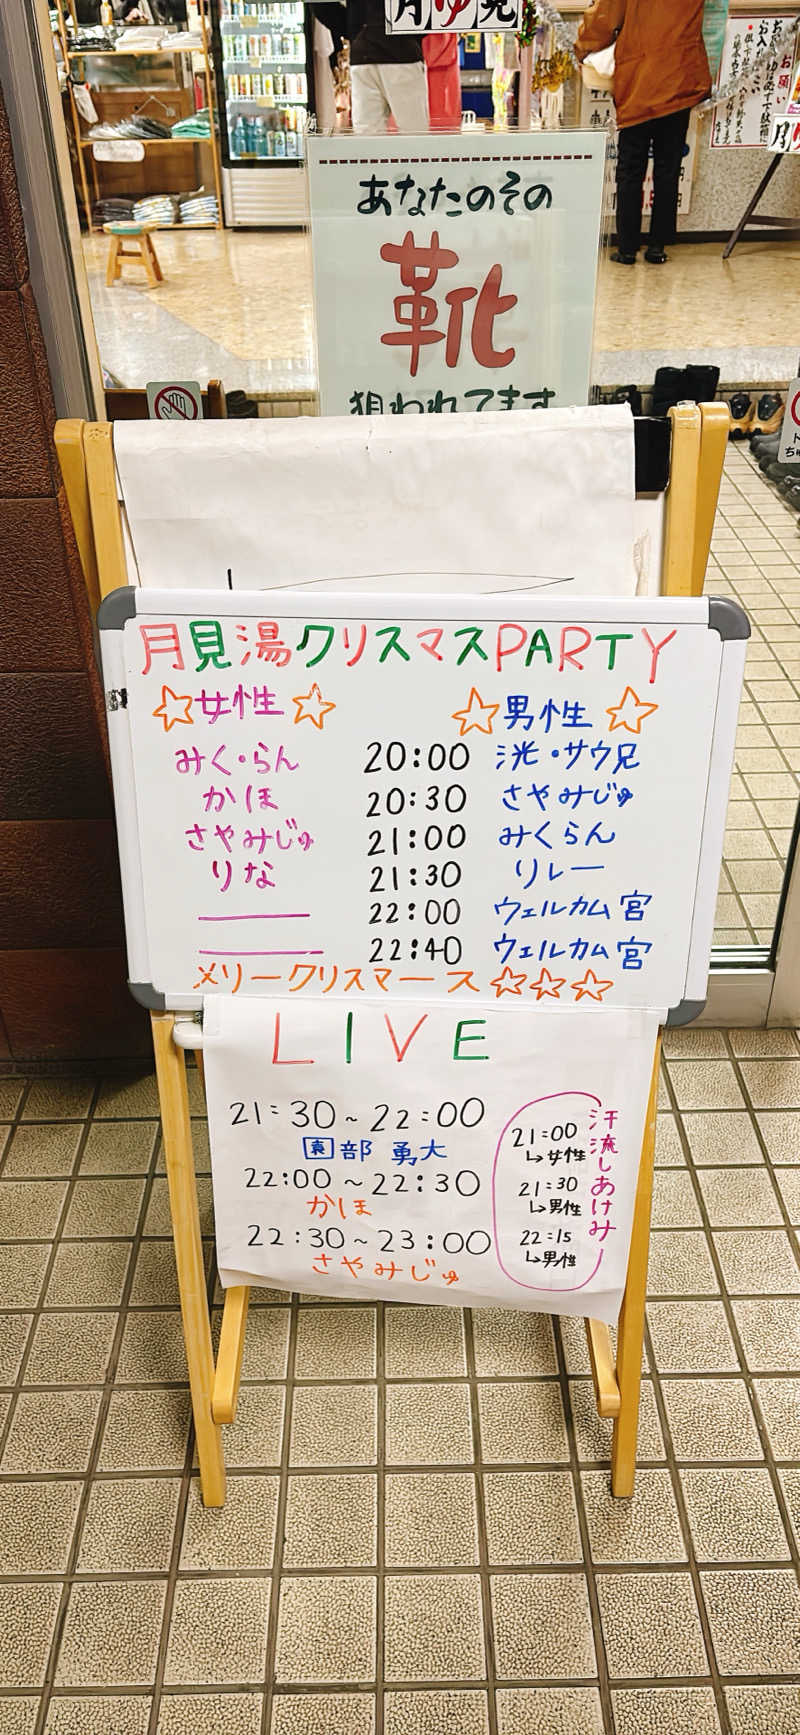 月ゆ見
お願い
あなたのその
靴
狙われてます
月見湯クリスマスPARTY
☆女性☆ ☆男性☆
みく・らん 20:00 洸・サウ兄
かほ 20:30 さやみじゅ
さやみじゅ 21:00 みくらん
りな 21:30 リレー
—— 22:00 ウェルカム宮
—— 22:40 ウェルカム宮
メリークリスマース☆☆☆
LIVE
21:30~22:00
園部 勇大
22:00~22:30
かほ
22:30~23:00
さやみじゅ
汗流しあけみ
21:00
↳女性
21:30
↳男性
22:15
↳男性